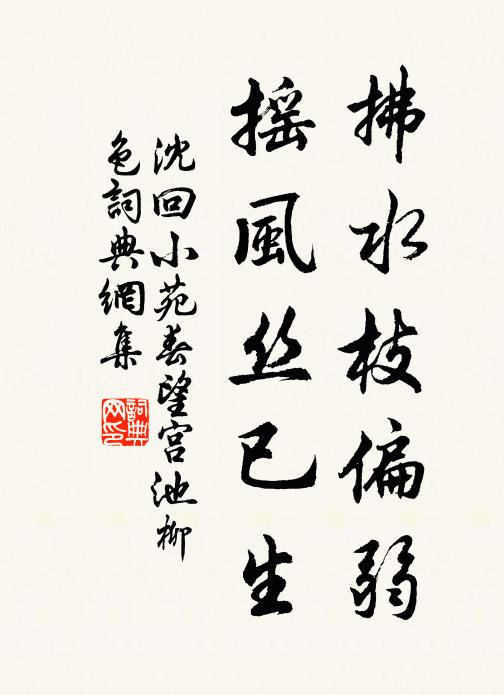 拂水枝偏弱
摇風丝已生
沈回小苑春望宫池柳
色詞典網集
詞典
网印